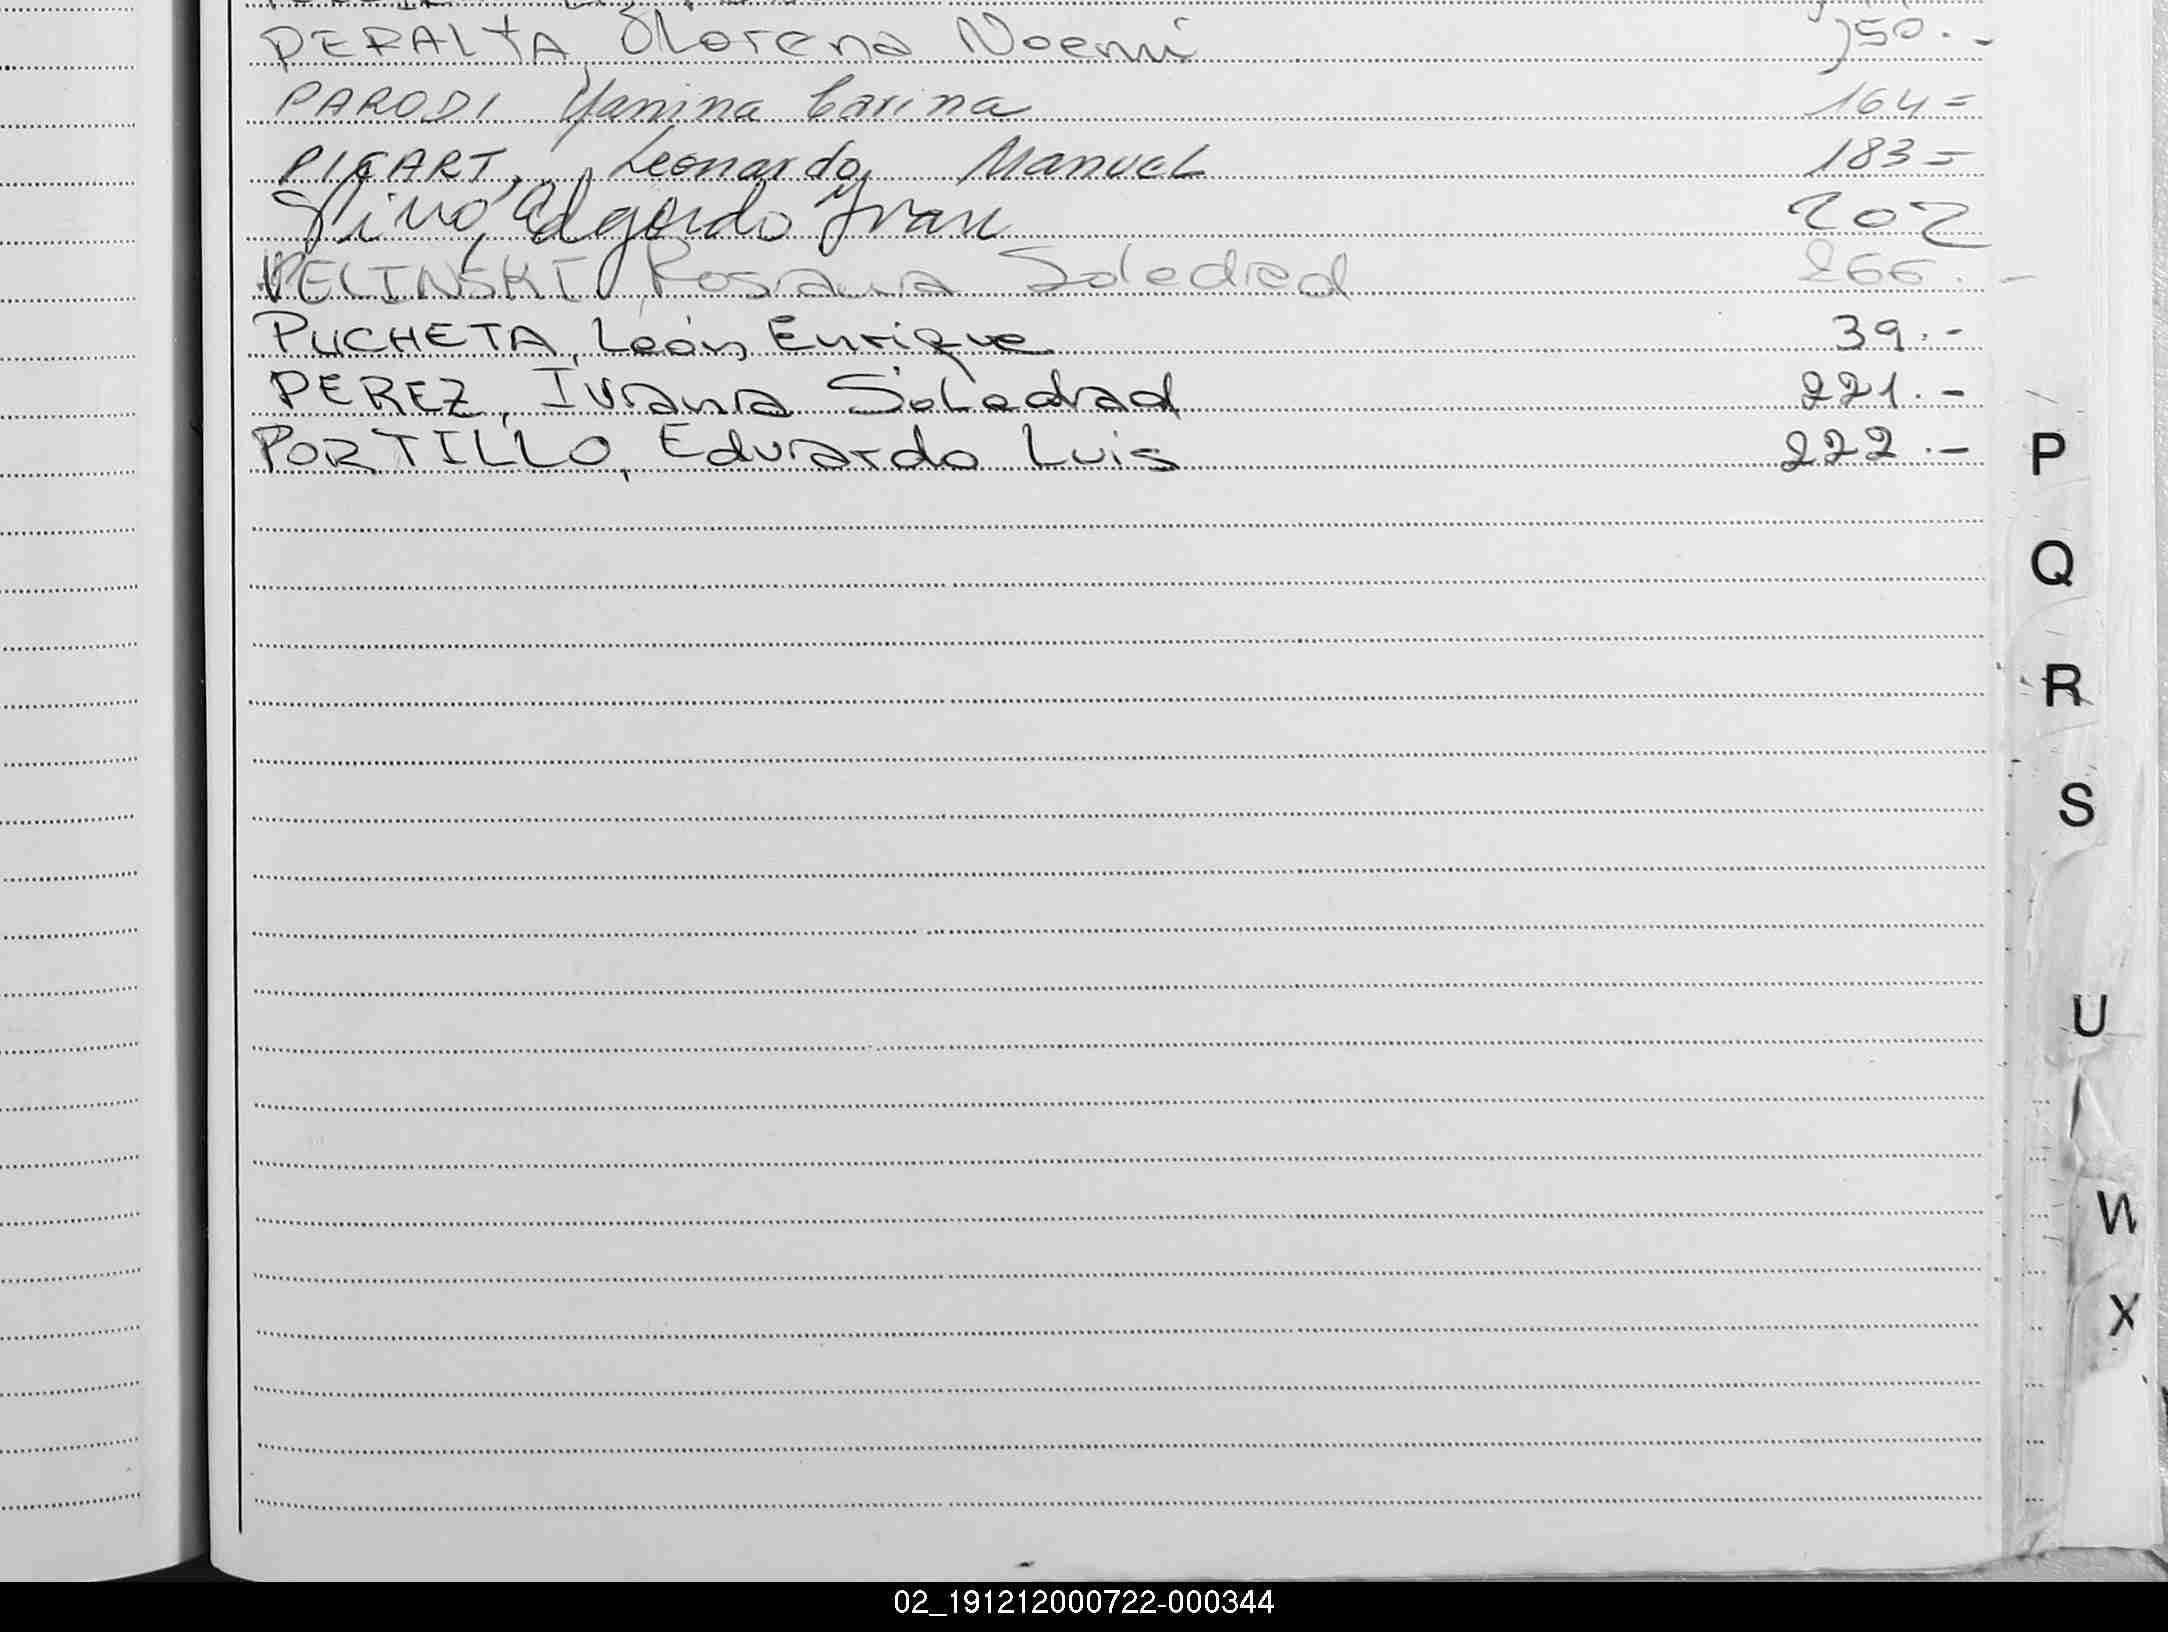 PERALTA, Florena Noemi 150.-
PARODI Yanina Carina 164=
PICART, Leonardo Manuel 183=
Pino, Edgardo Yvan 202
PELINSKI, Rosana Soledad 266.-
PUCHETA, León Enrique 39.-
PEREZ, Ivana Soledad 221.-
PORTILLO, Eduardo Luis 222.-
P
Q
R
S
U
W
X
02_191212000722-000344